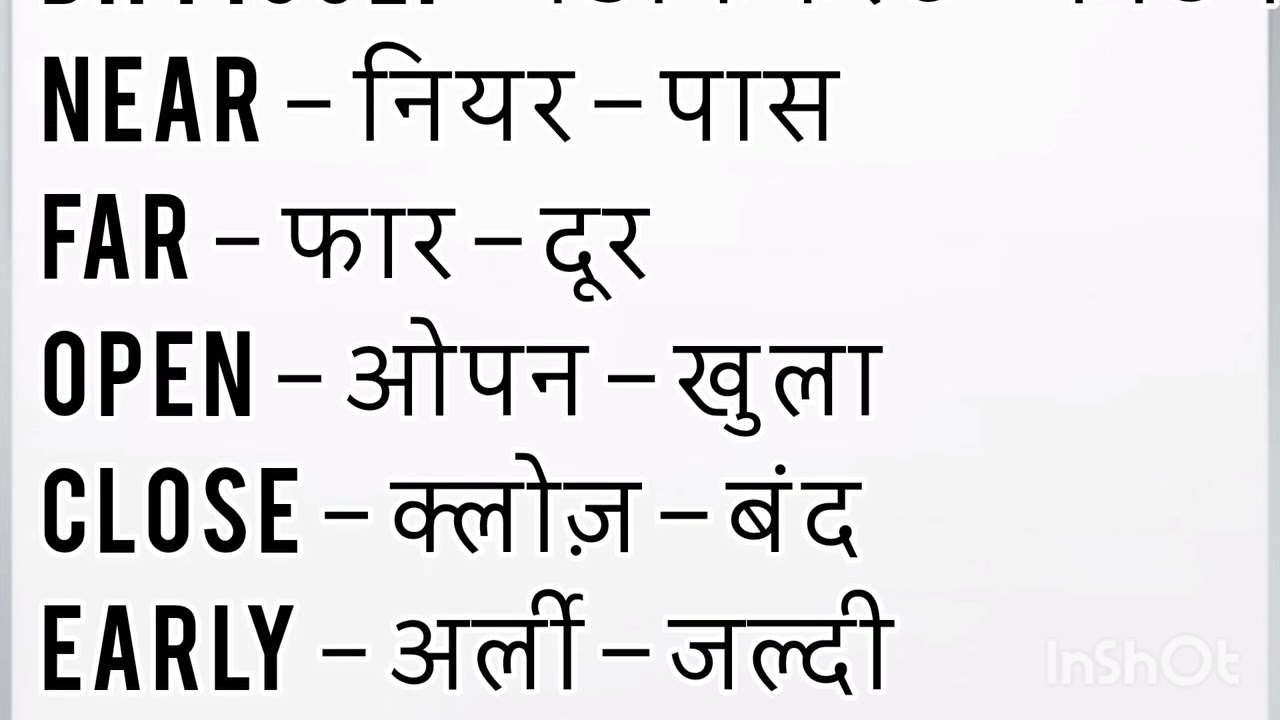 NEAR – नियर – पास
FAR – फार – दूर
OPEN – ओपन – खुला
CLOSE – क्लोज़ – बंद
EARLY – अर्ली – जल्दी
InShOt